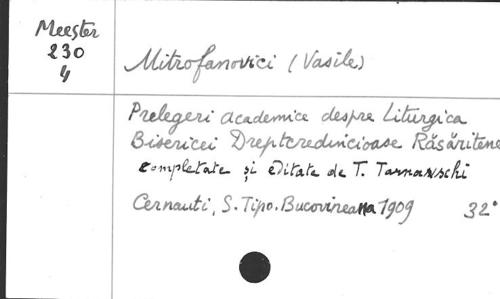 Meester
230
4
Mitrofanovici (Vasile)
Prelegeri academice despre Liturgica
Bisericei Dreptcredincioase Răsăritene
completate și editate de T. Tarnawschi
Cernauti, S. Tipo. Bucovineana 1909 32°